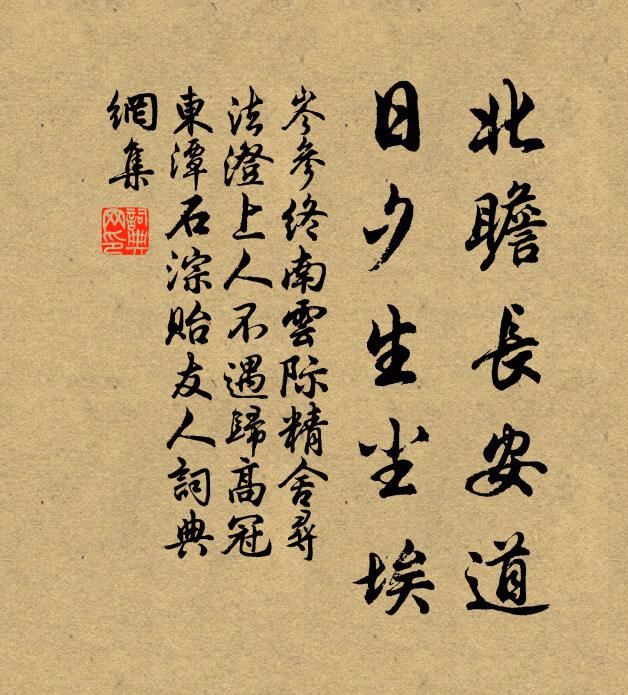 北瞻長安道
日夕生尘埃
岑參終南雲际精舍尋
法澄上人不遇歸高冠
東潭石淙貽友人詞典
網集
詞典
网印